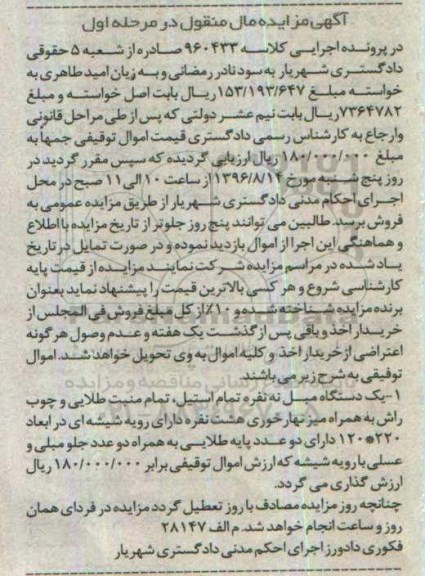 آگهی مزایده مال منقول در مرحله اول
در پرونده اجرایی کلاسه ۹۶۰۴۳۳ صادره از شعبه ۵ حقوقی
دادگستری شهریار به سود نادر رمضانی و به زیان امید طاهری به
خواسته مبلغ ۱۵۳/۱۹۳/۶۴۷ ریال بابت اصل خواسته و مبلغ
۷۳۶۴۷۸۲ ریال بابت نیم عشر دولتی که پس از طی مراحل قانونی
وارجاع به کارشناس رسمی دادگستری قیمت اموال توقیفی جمعا به
مبلغ ۱۸۰/۰۰۰/۰۰۰ ریال ارزیابی گردیده که سپس مقرر گردید در
روز پنج شنبه مورخ ۱۳۹۶/۸/۱۴ از ساعت ۱۰ الی ۱۱ صبح در محل
اجرای احکام مدنی دادگستری شهریار از طریق مزایده عمومی به
فروش برسد. طالبین می توانند پنج روز جلوتر از تاریخ مزایده با اطلاع
و هماهنگی این اجرا از اموال بازدید نموده و در صورت تمایل در تاریخ
یاد شده در مراسم مزایده شرکت نمایند مزایده از قیمت پایه
کارشناسی شروع و هر کسی بالاترین قیمت را پیشنهاد نماید بعنوان
برنده مزایده شناخته شده و ۱۰٪ از کل مبلغ فروش فی المجلس از
خریدار اخذ و باقی پس از گذشت یک هفته و عدم وصول هر گونه
اعتراضی از خریدار اخذ و کلیه اموال به وی تحویل خواهد شد. اموال
توقیفی به شرح زیر می باشند
۱-یک دستگاه مبل نه نفره تمام استیل، تمام منبت طلایی و چوب
راش به همراه میز نهارخوری هشت نفره دارای رویه شیشه ای در ابعاد
۲۲۰*۱۲۰ دارای دو عدد پایه طلایی به همراه دو عدد جلو مبلی و
عسلی با رویه شیشه که ارزش اموال توقیفی برابر ۱۸۰/۰۰۰/۰۰۰ ریال
ارزش گذاری می گردد.
چنانچه روز مزایده مصادف با روز تعطیل گردد مزایده در فردای همان
روز و ساعت انجام خواهد شد. م الف ۲۸۱۴۷
فکوری دادورز اجرای احکم مدنی دادگستری شهریار